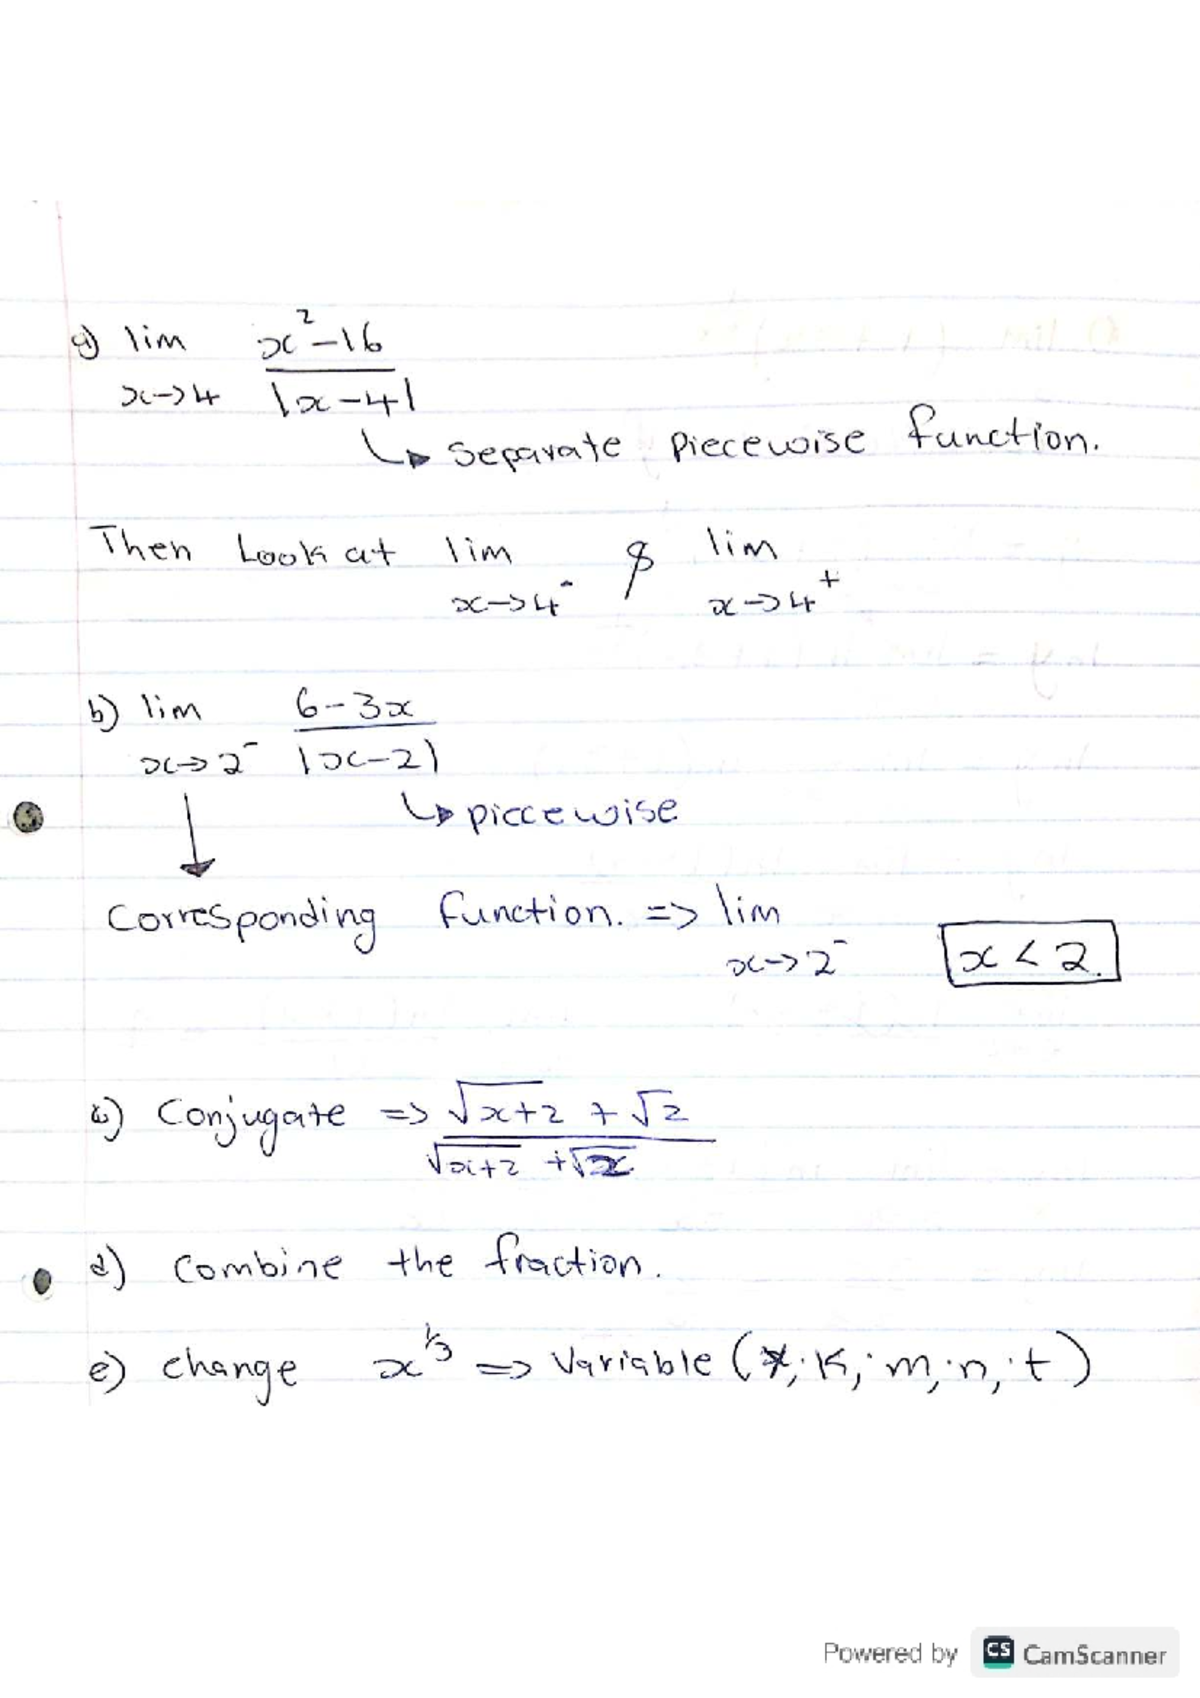 a) lim x²-16
x→4 |x-4|
↳ separate piecewise function.
Then Look at lim & lim
x→4⁻ x→4⁺
b) lim 6-3x
x→2⁻ |x-2|
↳ piecewise
Corresponding function. => lim
x→2⁻ x < 2.
c) Conjugate => √x+2 + √2
√x+2 + √2
d) combine the fraction.
e) change x^1/3 => Variable ( , K, m, n, t)
Powered by CS CamScanner